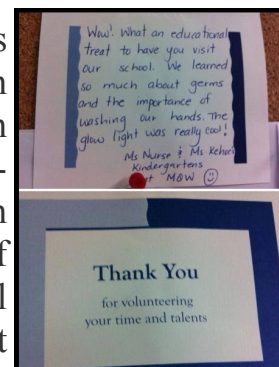 s
n
n
-
n
f
l
t
Wow! What an educational
treat to have you visit
our school. We learned
so much about germs
and the importance of
washing our hands. The
glow light was really cool!
Ms Nurse & Ms
Kindergartens
M&W
Thank You
for volunteering
your time and talents